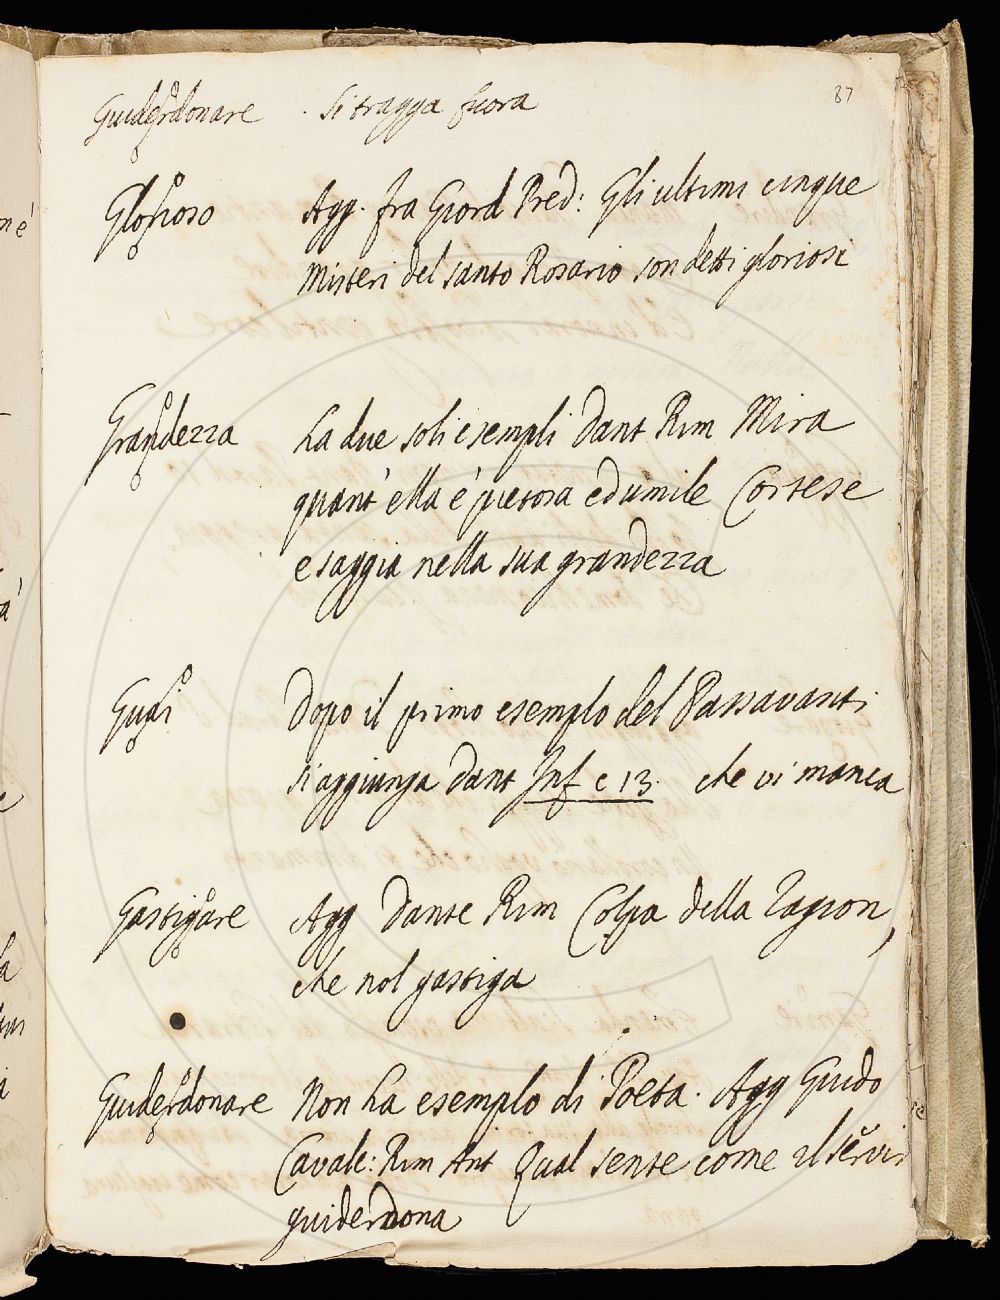 87
Guiderdonare . si tragga fuora
Glorioso Agg. fra Giord Pred: Gli ultimi cinque
Misteri del santo Rosario son detti gloriosi
Grandezza ha due soli esempli Dant Rim Mira
quant' ella e' pietosa ed umile Cortese
e saggia nella sua grandezza
Guai Dopo il primo esemplo del Passavanti
si aggiunga Dant Inf c 13. che vi manca
Gastigare Agg Dante Rim Colpa della ragion,
che nol gastiga
Guiderdonare Non ha esemplo di Poeta. Agg Guido
Cavalc: Rim Ant Qual sente come il servir
guiderdona